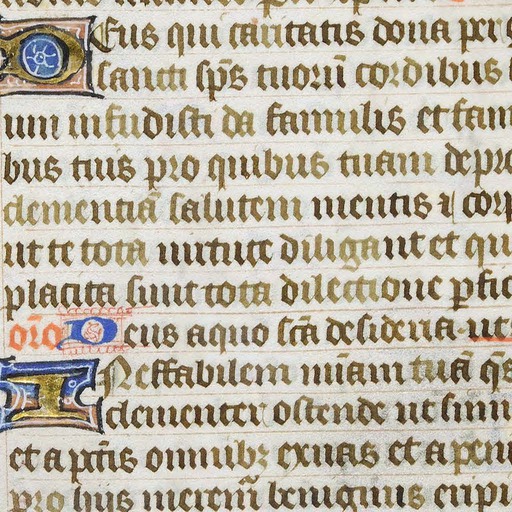 Deus qui caritatis dona per g
sancti sp̄s tuorū cordibus
um infudisti da famulis et fam
bus tuis pro quibus tuam depre
clementiā salutem mentis ⁊ corp
ut te tota uirtute diligant et qu
placita sunt tota dilectione ꝑfic
or̄o Deus a quo sc̄a desideria ut s
INeffabilem m̄iam tuā qs̄
clementer ostende ut simu
et a pctīs omnibꝫ exuas et a pen
pro hiis merem̄ benignus eripi